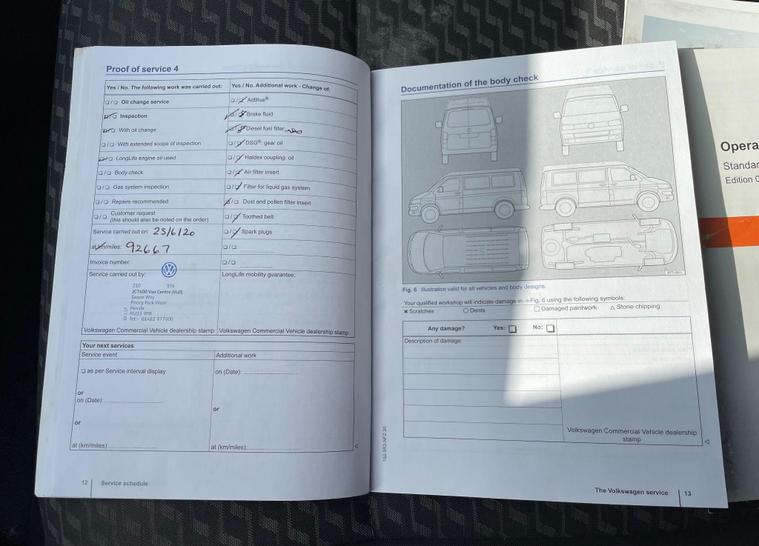 Proof of service 4
Yes / No. The following work was carried out:
❑/❑ Oil change service
❑/❑ Inspection
❑/❑ With oil change
❑/❑ With extended scope of inspection
❑/❑ LongLife engine oil used
❑/❑ Body check
❑/❑ Gas system inspection
❑/❑ Repairs recommended
❑/❑ Customer request
(this should also be noted on the order)
Service carried out on: 25/6/20
at km/miles: 92667
Invoice number:
Service carried out by:
JCT600 Van Centre (Hull)
Saxon Way
Priory Park West
Hessle
HU13 9PB
Volkswagen Commercial Vehicle dealership stamp
Yes / No. Additional work - Change of:
❑/❑ AdBlue®
❑/❑ Brake fluid
❑/❑ Diesel fuel filter NO
❑/❑ DSG®: gear oil
❑/❑ Haldex coupling: oil
❑/❑ Air filter insert
❑/❑ Filter for liquid gas system
❑/❑ Dust and pollen filter insert
❑/❑ Toothed belt
❑/❑ Spark plugs
❑/❑
❑/❑
LongLife mobility guarantee:
Volkswagen Commercial Vehicle dealership stamp
Your next services
Service event
❑ as per Service interval display
or
on (Date)
or
at (km/miles)
Additional work
on (Date):
or
at (km/miles)
12 Service schedule
Documentation of the body check
Fig. 6 Illustration valid for all vehicles and body designs.
Your qualified workshop will indicate damage in ⇒Fig. 6 using the following symbols:
✖ Scratches O Dents ☐ Damaged paintwork △ Stone chipping
Any damage? Yes: ❑ No: ❑
Description of damage:
Volkswagen Commercial Vehicle dealership
stamp
The Volkswagen service 13
Opera
Standar
Edition 0